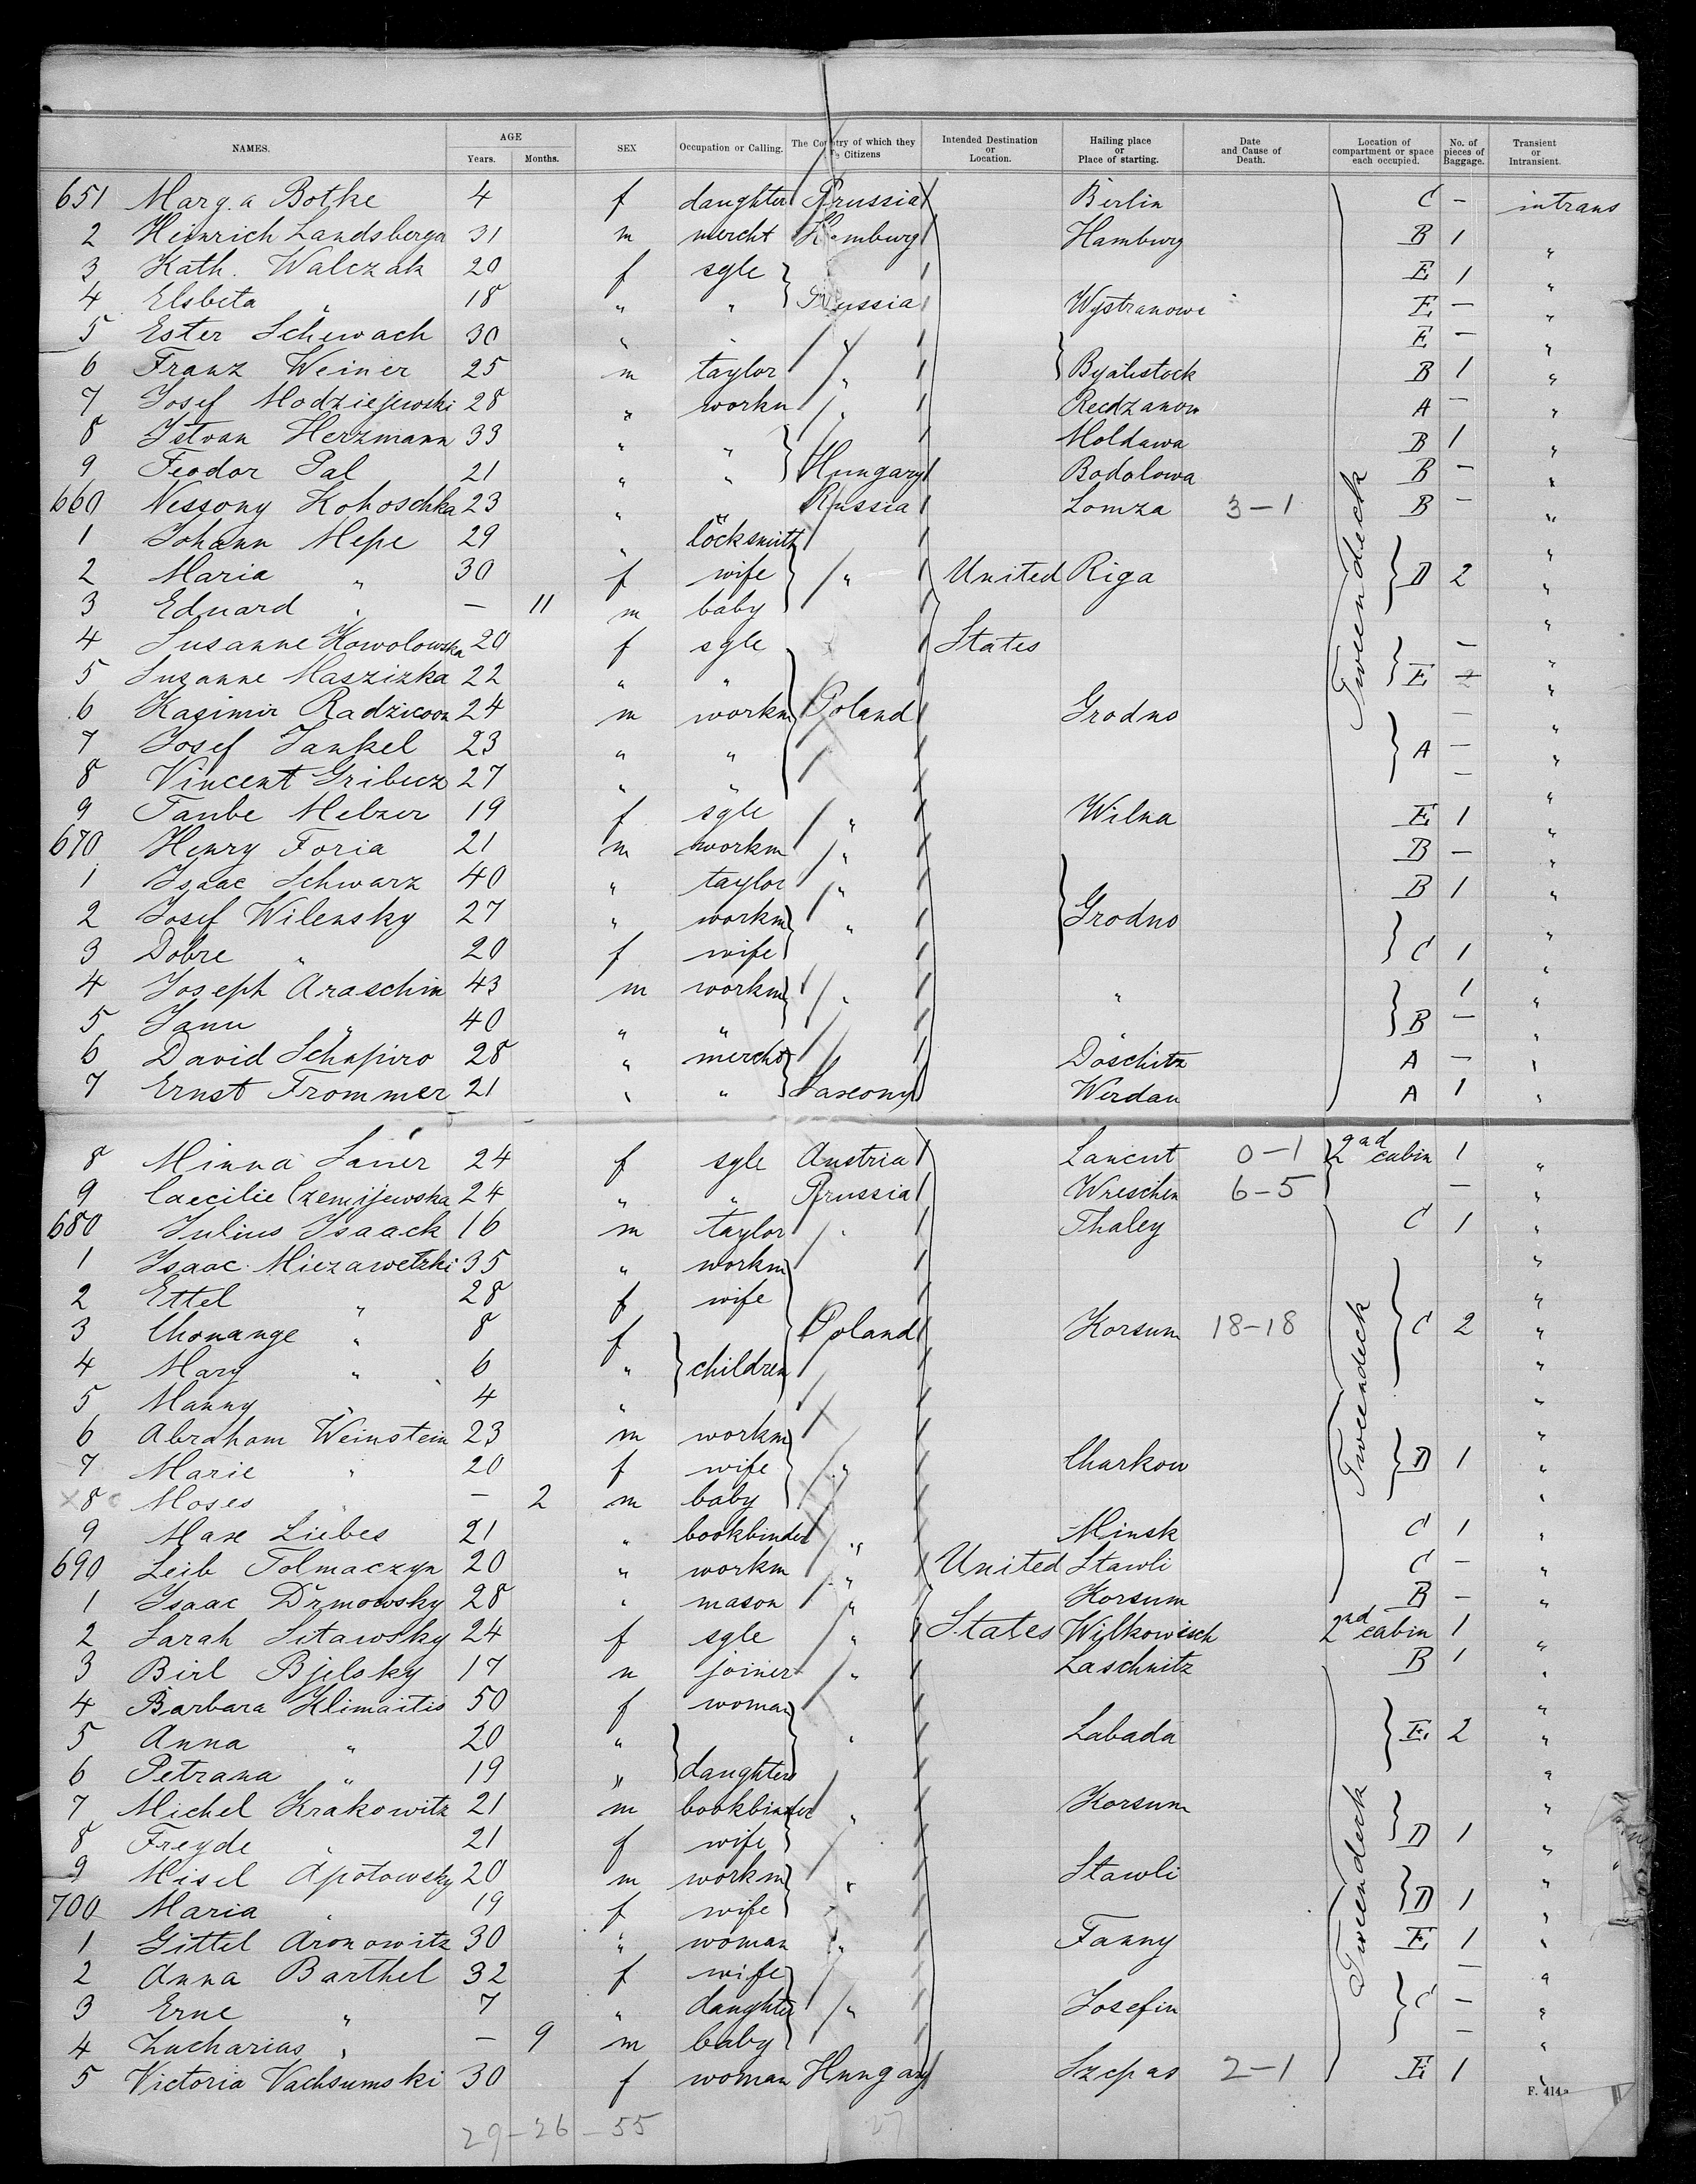 NAMES. AGE SEX Occupation or Calling. The Country of which they Citizens Intended Destination or Location. Hailing place or Place of starting. Date and Cause of Death. Location of compartment or space each occupied. No. of pieces of Baggage. Transient or Intransient.
Years. Months.
651 Marg.a Botke 4 f daughter Prussia Berlin C - intrans
2 Heinrich Landsberger 31 m mercht Hamburg Hamburg B 1 "
3 Kath. Walczak 20 f sgle E 1 "
4 Elsbeta " 18 " " Wystranowi E - "
5 Ester Schewach 30 " " " E - "
6 Franz Weiner 25 m taylor " Byalistock B 1 "
7 Josef Modziejewski 28 " workm " Redzanow A - "
8 Istvan Herzmann 33 " " Moldawa B 1 "
9 Feodor Pal 21 " " Hungary Bodolowa B - "
660 Nessony Kohoschka 23 " " Russia Lomza 3-1 B - "
1 Johann Mepe 29 " locksmith "
2 Maria " 30 f wife " United Riga D 2 "
3 Eduard " - 11 m baby "
4 Susanne Kowolowska 20 f sgle States - "
5 Susanne Maszizka 22 " " E "
6 Kasimir Radzicoon 24 m workm Poland Grodno - "
7 Josef Jankel 23 " " A - "
8 Vincent Gribucz 27 " " - "
9 Taube Melzer 19 f sgle " Wilna E 1 "
670 Henry Foria 21 m workm " B - "
1 Isaac Schwarz 40 " taylor " B 1 "
2 Josef Wilensky 27 " workm " Grodno "
3 Dobre " 20 f wife C 1 "
4 Joseph Araschin 43 m workm " " 1 "
5 Janu " 40 " " B - "
6 David Schapiro 28 " mercht Doschitz A - "
7 Ernst Frommer 21 " " Saxony Werdau A 1 "
8 Minna Sauer 24 f sgle Austria Lancut 0-1 2nd cabin 1 "
9 Caecilie Czemijewska 24 " " Prussia Wreschen 6-5 - "
680 Julius Isaack 16 m taylor " Thaley C 1 "
1 Isaac Miezawetzki 35 " workm "
2 Ettel " 28 f wife "
3 Chonange " 8 f Poland Korsum 18-18 C 2 "
4 Mary " 6 " children "
5 Manny " 4 " "
6 Abraham Weinstein 23 m workm "
7 Marie " 20 f wife " Charkow D 1 "
8 Moses " - 2 m baby "
9 Max Liebes 21 " bookbinder " Minsk C 1 "
690 Leib Tolmaczyn 20 " workm " United Stawli C - "
1 Isaac Drmowsky 28 " mason " Korsum B - "
2 Sarah Sitawsky 24 f sgle " States Wilkowisch 2nd cabin 1 "
3 Birl Bjelsky 17 m joiner " Laschnitz B 1 "
4 Barbara Klimaitis 50 f woman "
5 Anna " 20 " " Labada E 2 "
6 Petrana " 19 " daughters "
7 Michel Krakowitz 21 m bookbinder " Korsum "
8 Freyde " 21 f wife D 1 "
9 Misel Apotowsky 20 m workm " Stawli "
700 Maria " 19 f wife D 1 "
1 Gittel Aronowitz 30 " woman " Fanny E 1 "
2 Anna Barthel 32 f wife - "
3 Erne " 7 " daughter " Josefin C - "
4 Zacharias " - 9 m baby - "
5 Victoria Vachsumski 30 f woman Hungary Szepas 2-1 E 1 "
Tweendeck
Tweendeck
Tweendeck
F. 414a
29-26-55 27